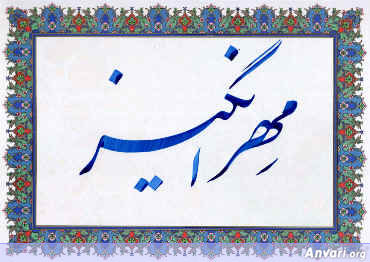 مهرانگیز
Anvari.org